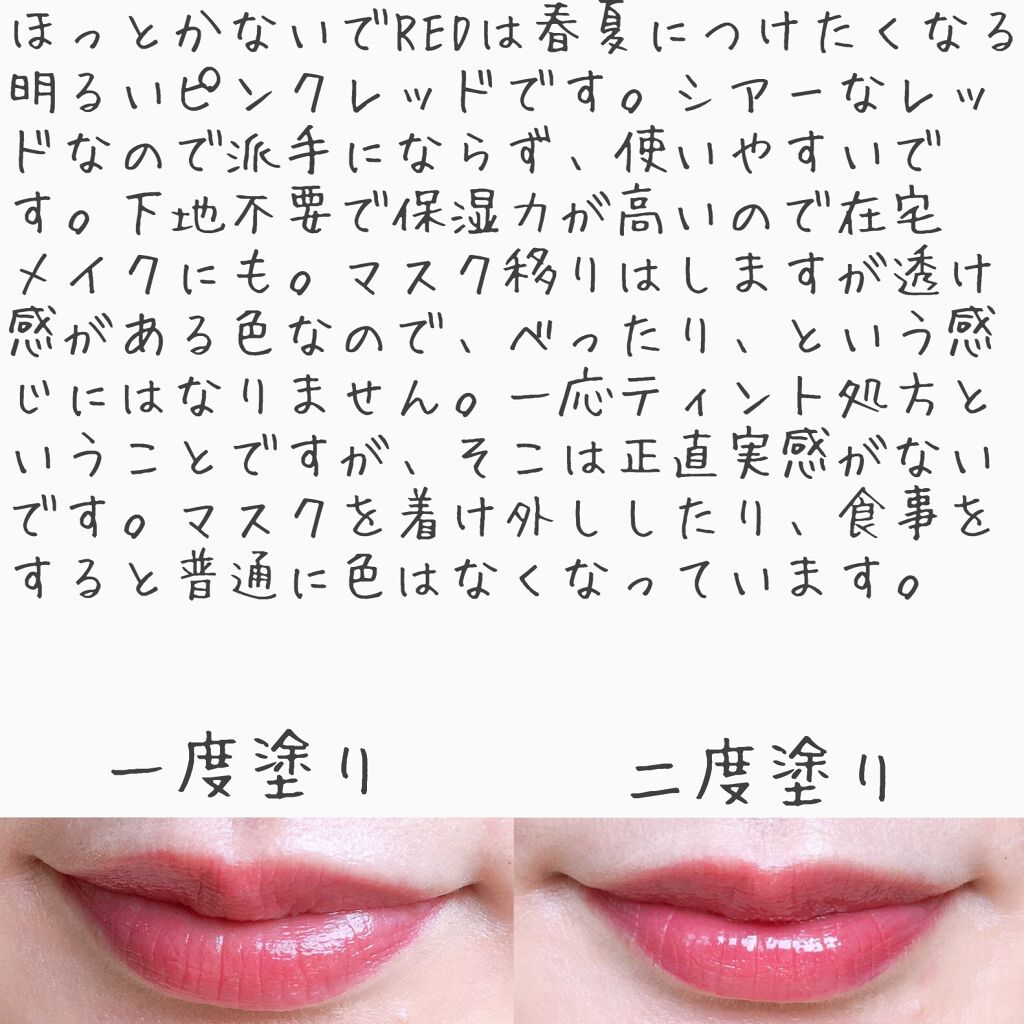 ほっとかないでREDは春夏につけたくなる
明るいピンクレッドです。シアーなレッ
ドなので派手にならず、使いやすいで
す。下地不要で保湿力が高いので在宅
メイクにも。マスク移りはしますが透け
感がある色なので、べったり、という感
じにはなりません。一応ティント処方と
いうことですが、そこは正直実感がない
です。マスクを着け外ししたり、食事を
すると普通に色はなくなっています。
一度塗り
二度塗り